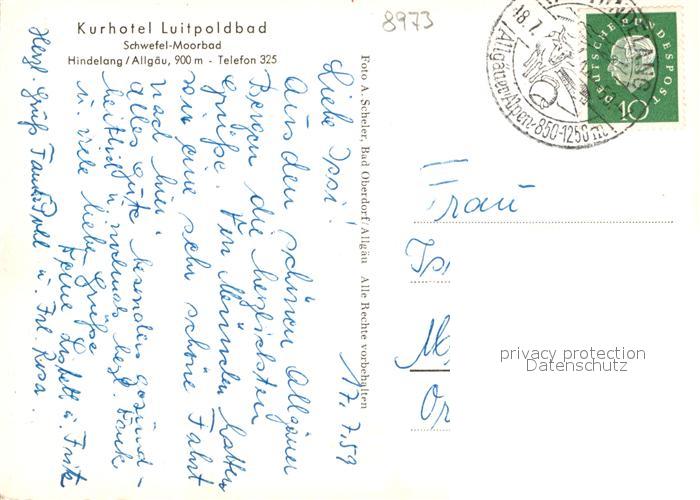 Kurhotel Luitpoldbad
Schwefel-Moorbad
Hindelang/Allgäu, 900 m - Telefon 325
8973
17.7.59
Liebe Issi!
Aus den schönen Allgäuer
Bergen die herzlichsten
Grüße. Von München hatten
wir eine sehr schöne Fahrt
nach hier.
Alles Gute besonders Gesund-
heitlich u. nochmals herzl. Dank
u. viele liebe Grüße
Deine Lisbeth u. Fritz
Herzl. Gruß Tante u. Frl. Rosa.
Foto A. Scheler, Bad Oberdorf/Allgäu Alle Rechte vorbehalten
18.7.
Allgäuer Alpen-850-1250 m
DEUTSCHE BUNDESPOST
10
Frau
Is
M
Or
privacy protection
Datenschutz